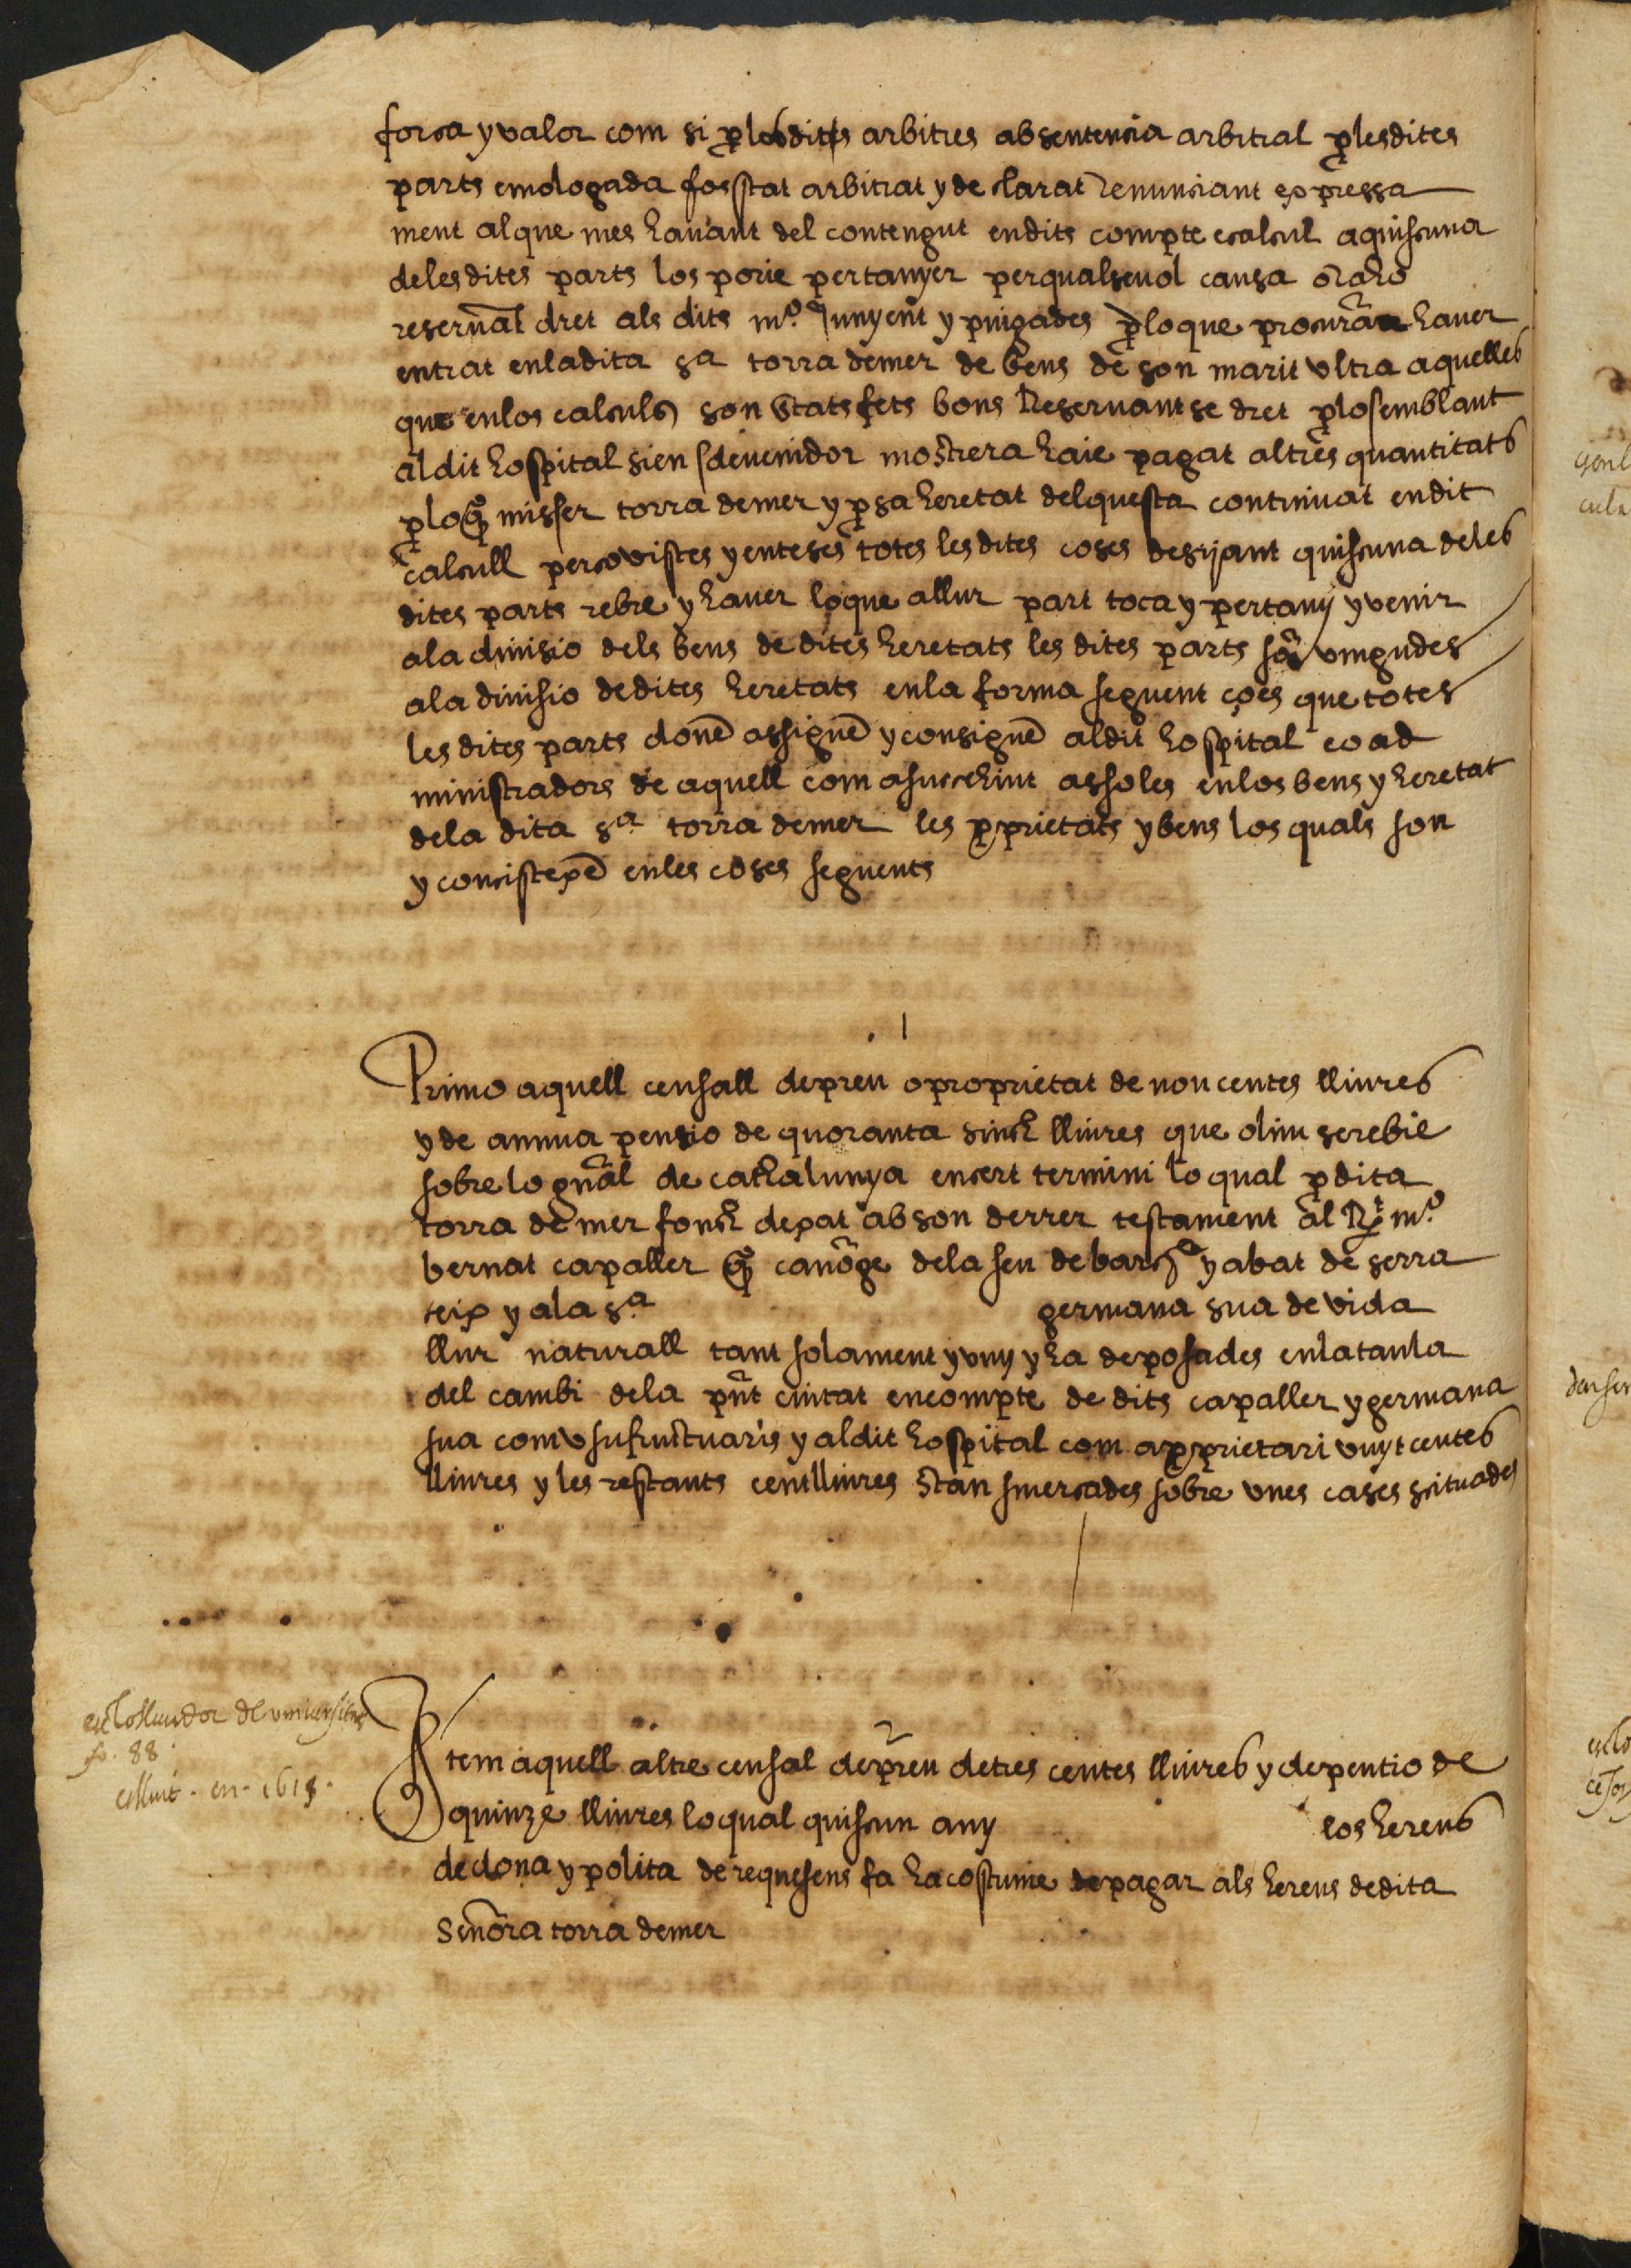 forca y valor com si plosdits arbitres absentencia arbitral plesdites
parts emologada fos stat arbitrat y declarat renunciant expressa
ment alque mes havant del contengut endits compte ecalcul aquiscuna
delesdites parts los porie pertanyer perqualsevol causa o raho
reservãt dret als dits mº. Junyent y puigades ploque procurarã haver
entrat enladita sª torra demer de bens de son marit ultra aquelles
que enlos calculs son stats fets bons Reservantse dret plosemblant
aldit hospital sien sdevenidor mostrera haie pagat altres quantitats
ploqº misser torra demer y p sa heretat delquesta continuat endit
calcull perço vistes y enteses totes lesdites coses desijant quiscuna deles
dites parts rebre y haver loque allur part toca y pertany y venir
ala divisio dels bens de dites heretats les dites parts sõ vingudes
ala divisio dedites heretats enla forma seguent çoes que totes
les dites parts donẽ assignẽ y consignẽ aldit hospital eo ad
ministradors de aquell com asuccehint assoles enlos bens y heretat
dela dita sª torra demer les pprietats y bens los quals son
y concistexẽ enles coses seguents
. 1
Primo aquell censall depreu o proprietat de noucentes lliures
y de annua pensio de quoranta sinch lliures que olim serebie
sobre lo gñal de cathalunya encert termini lo qual p dita
torra de mer fonch dexat ab son derrer testament al Rt mº.
bernat capaller qº canõge dela seu de barcª y abat de serra
teix y ala sª germana sua de vida
llur naturall tant solament y vuy y ha deposades enlataula
del cambi dela pñt ciutat encompte de dits capaller y germana
sua com usufructuaris y aldit hospital com a pprietari vuytcentes
lliures y les restants centlliures stan smercades sobre unes cases scituades
es lo lluidor de universitat
fo. 88.
es lluit. en. 1618.
Item aquell altre censal depreu detres centes lliures y depentio de
quinze lliures loqual quiscun any los hereus
dedona ypolita de requesens fa ha costume de pagar als hereus dedita
Senõra torra demer